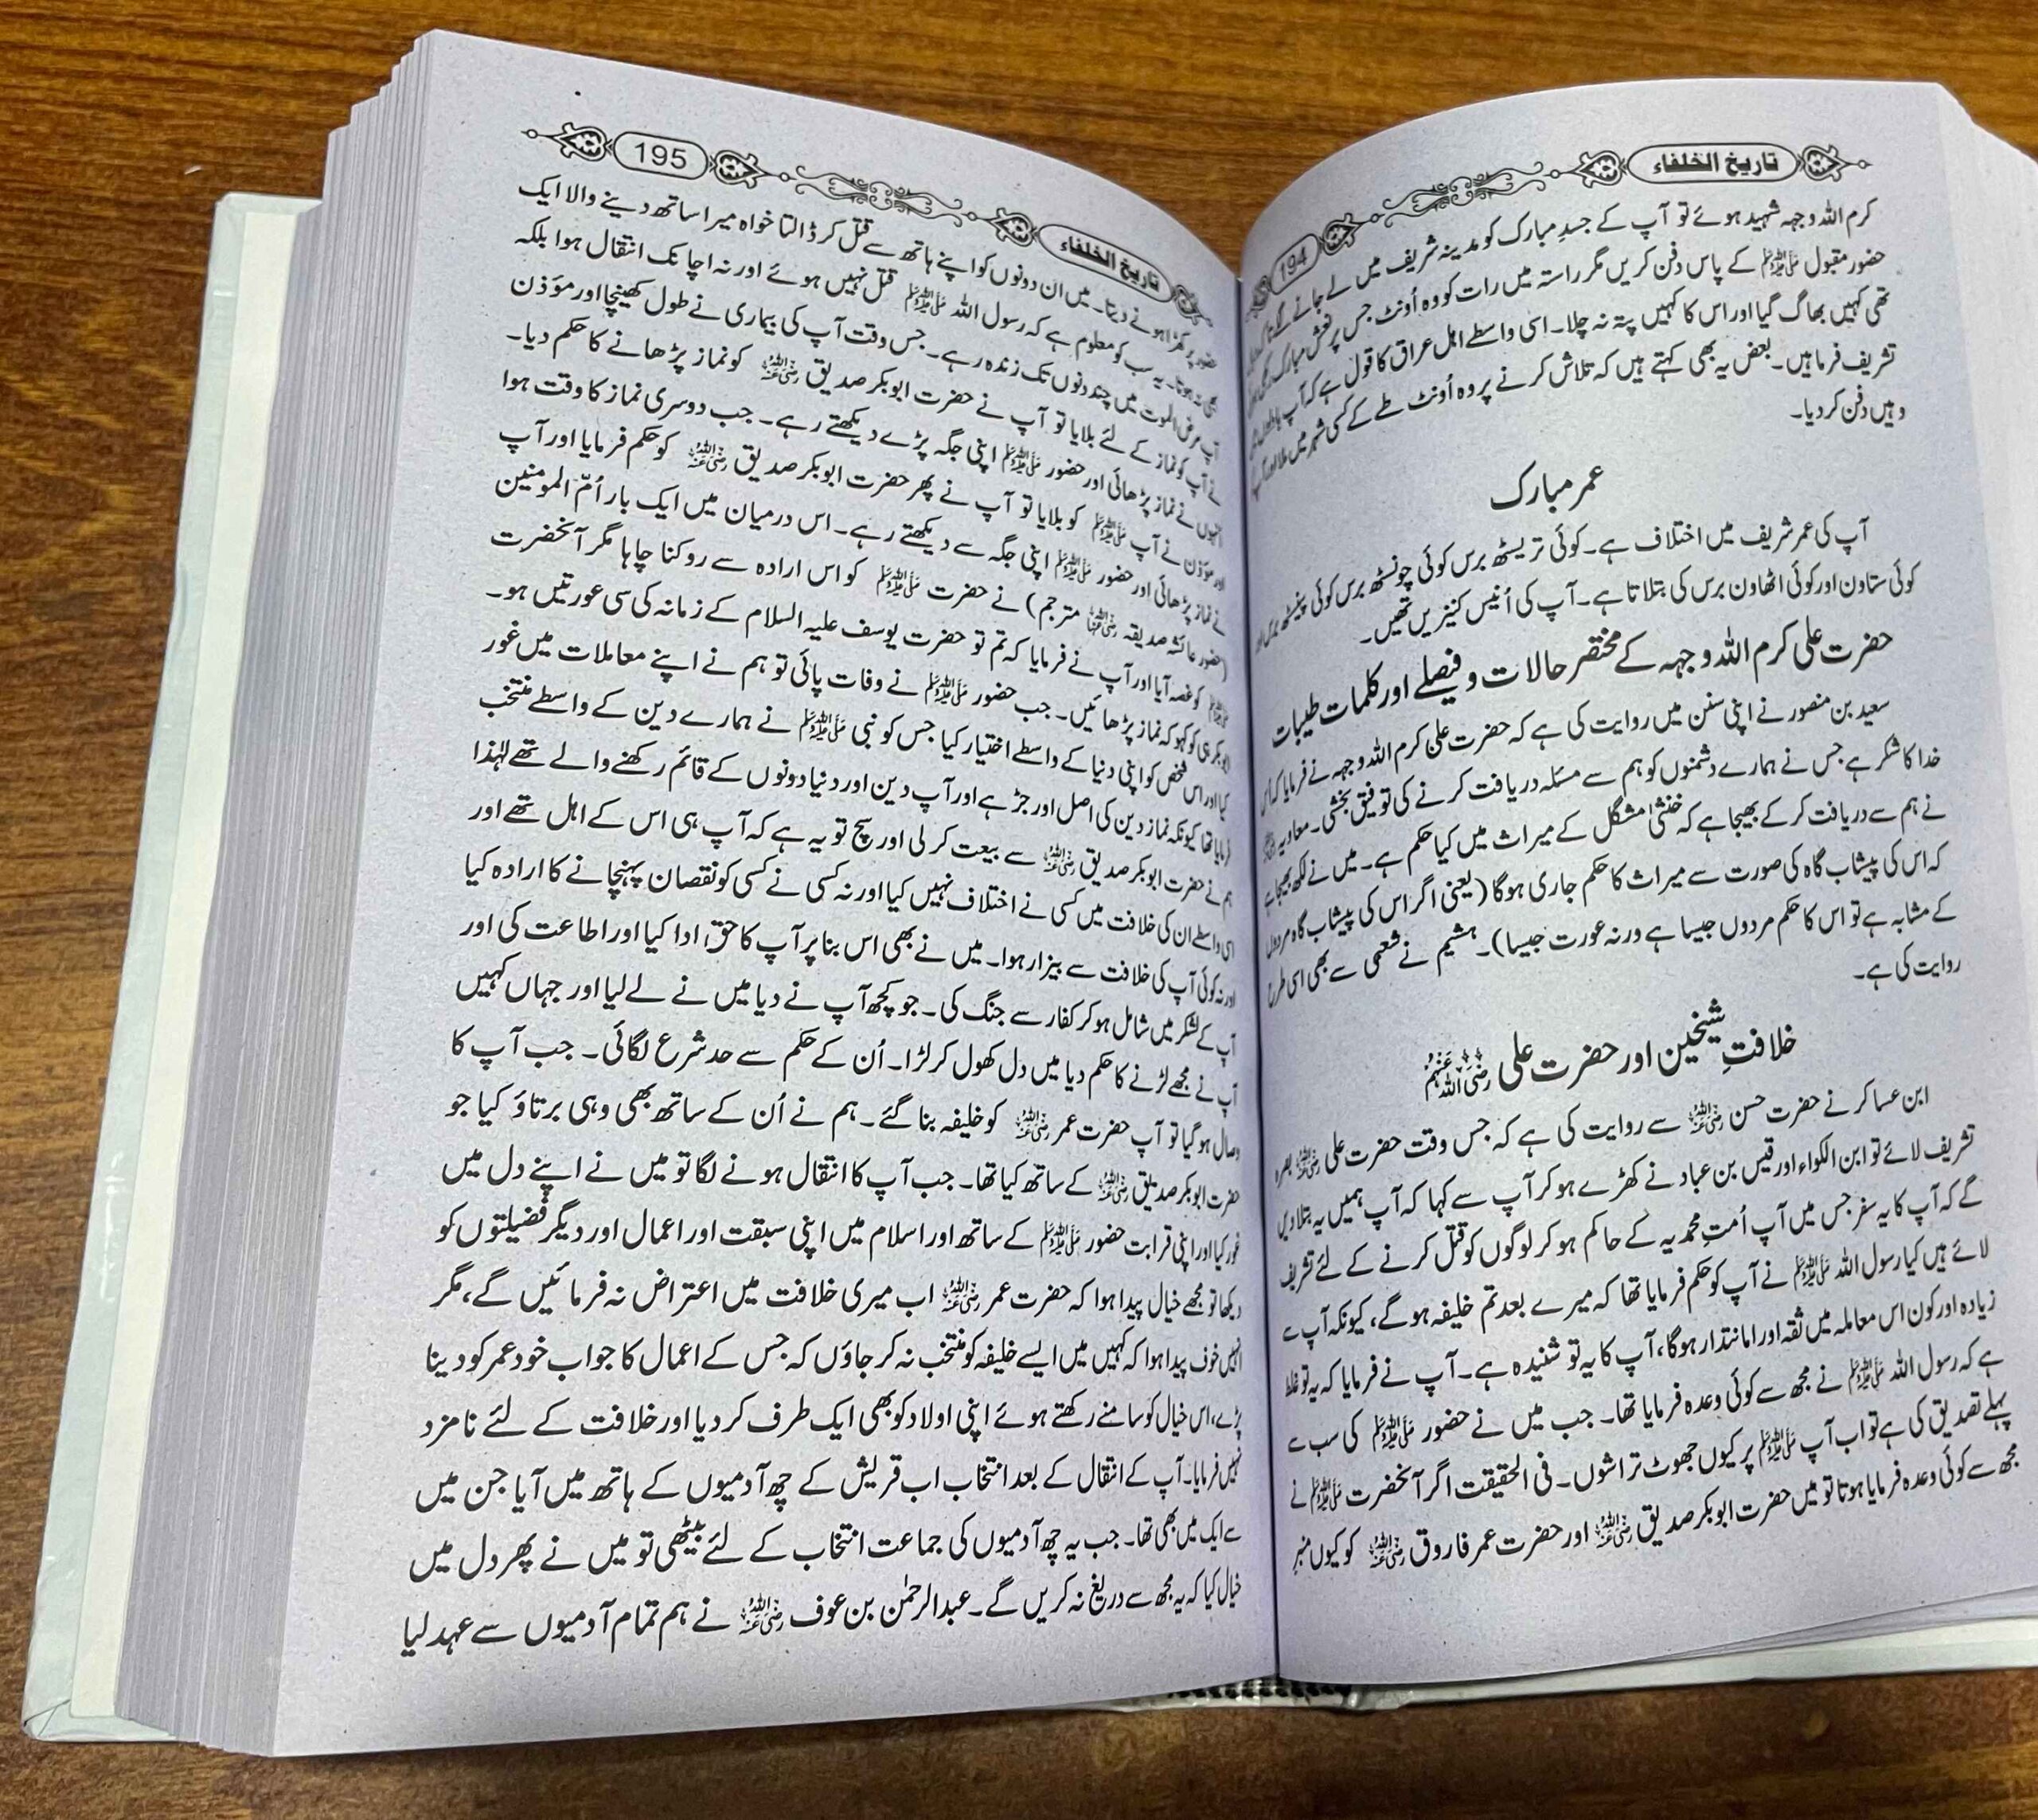 تاریخ الخلفاء
194
کرم اللہ وجہہ شہید ہوئے تو آپ کے جسدِ مبارک کو مدینہ شریف میں لے جانے لگے تاکہ
حضور مقبول ﷺ کے پاس دفن کریں مگر راستہ میں رات کو وہ اُونٹ جس پر نعش مبارک
تھی کہیں بھاگ گیا اور اس کا کہیں پتہ نہ چلا۔ اسی واسطے اہل عراق کا قول ہے کہ آپ
تشریف فرما ہیں۔ بعض یہ بھی کہتے ہیں کہ تلاش کرنے پر وہ اُونٹ طے کے کسی شہر میں ملا اور آپ
وہیں دفن کر دیا۔
عمر مبارک
آپ کی عمر شریف میں اختلاف ہے۔ کوئی تریسٹھ برس کوئی چونسٹھ برس کوئی پینسٹھ برس اور
کوئی ستاون اور کوئی اٹھاون برس کی بتلاتا ہے۔ آپ کی اُنیس کنیزیں تھیں۔
حضرت علی کرم اللہ وجہہ کے مختصر حالات و فیصلے اور کلمات طیبات
سعید بن منصور نے اپنی سنن میں روایت کی ہے کہ حضرت علی کرم اللہ وجہہ نے فرمایا کہ اس
خدا کا شکر ہے جس نے ہمارے دشمنوں کو ہم سے مسئلہ دریافت کرنے کی توفیق بخشی۔ معاویہ
نے ہم سے دریافت کر کے بھیجا ہے کہ خنثیٰ مشگل کے میراث میں کیا حکم ہے۔ میں نے لکھ بھیجا ہے
کہ اس کی پیشاب گاہ کی صورت سے میراث کا حکم جاری ہوگا (یعنی اگر اس کی پیشاب گاہ مردوں
کے مشابہ ہے تو اس کا حکم مردوں جیسا ہے ورنہ عورت جیسا)۔ ہشیم نے شعمی سے بھی اسی طرح
روایت کی ہے۔
خلافتِ شیخین اور حضرت علی رضی اللہ عنہم
ابن عساکر نے حضرت حسن رضی اللہ عنہ سے روایت کی ہے کہ جس وقت حضرت علی رضی اللہ عنہ بصرہ
تشریف لائے تو ابن الکواء اور قیس بن عباد نے کھڑے ہو کر آپ سے کہا کہ آپ ہمیں یہ بتلا دیں
گے کہ آپ کا یہ سفر جس میں آپ اُمتِ محمدیہ کے حاکم ہو کر لوگوں کو قتل کرنے کے لئے تشریف
لائے ہیں کیا رسول اللہ ﷺ نے آپ کو حکم فرمایا تھا کہ میرے بعد تم خلیفہ ہو گے، کیونکہ آپ سے
زیادہ اور کون اس معاملہ میں ثقہ اور امانتدار ہوگا، آپ کا یہ تو شنیدہ ہے۔ آپ نے فرمایا کہ یہ تو غلط
ہے کہ رسول اللہ ﷺ نے مجھ سے کوئی وعدہ فرمایا تھا۔ جب میں نے حضور ﷺ کی سب سے
پہلے تصدیق کی ہے تو اب آپ ﷺ پر کیوں جھوٹ تراشوں۔ فی الحقیقت اگر آنحضرت ﷺ نے
مجھ سے کوئی وعدہ فرمایا ہوتا تو میں حضرت ابوبکر صدیق رضی اللہ عنہ اور حضرت عمر فاروق رضی اللہ عنہ کو کیوں منبر
تاریخ الخلفاء
195
حضور پر کھڑا ہونے دیتا۔ میں ان دونوں کو اپنے ہاتھ سے قتل کر ڈالتا خواہ میرا ساتھ دینے والا ایک
بھی نہ ہوتا۔ یہ سب کو معلوم ہے کہ رسول اللہ ﷺ قتل نہیں ہوئے اور نہ اچانک انتقال ہوا بلکہ
آپ مرض الموت میں چند دنوں تک زندہ رہے۔ جس وقت آپ کی بیماری نے طول کھینچا اور موٴذن
نے آپ کو نماز کے لئے بلایا تو آپ نے حضرت ابوبکر صدیق رضی اللہ عنہ کو نماز پڑھانے کا حکم دیا۔
انہوں نے نماز پڑھائی اور حضور ﷺ اپنی جگہ پڑے دیکھتے رہے۔ جب دوسری نماز کا وقت ہوا
اور موٴذن نے آپ ﷺ کو بلایا تو آپ نے پھر حضرت ابوبکر صدیق رضی اللہ عنہ کو حکم فرمایا اور آپ
نے نماز پڑھائی اور حضور ﷺ اپنی جگہ سے دیکھتے رہے۔ اس درمیان میں ایک بار اُمّ المومنین
(حضور عائشہ صدیقہ رضی اللہ عنہا مترجم) نے حضرت ﷺ کو اس ارادہ سے روکنا چاہا مگر آنحضرت
ﷺ کو غصہ آیا اور آپ نے فرمایا کہ تم تو حضرت یوسف علیہ السلام کے زمانہ کی سی عورتیں ہو۔
ابوبکر ہی کو کہو کہ نماز پڑھائیں۔ جب حضور ﷺ نے وفات پائی تو ہم نے اپنے معاملات میں غور
کیا اور اس شخص کو اپنی دنیا کے واسطے اختیار کیا جس کو نبی ﷺ نے ہمارے دین کے واسطے منتخب
فرمایا تھا کیونکہ نماز دین کی اصل اور جڑ ہے اور آپ دین اور دنیا دونوں کے قائم رکھنے والے تھے لہٰذا
ہم نے حضرت ابوبکر صدیق رضی اللہ عنہ سے بیعت کر لی اور سچ تو یہ ہے کہ آپ ہی اس کے اہل تھے اور
اسی واسطے ان کی خلافت میں کسی نے اختلاف نہیں کیا اور نہ کسی نے کسی کو نقصان پہنچانے کا ارادہ کیا
اور نہ کوئی آپ کی خلافت سے بیزار ہوا۔ میں نے بھی اس بنا پر آپ کا حق ادا کیا اور اطاعت کی اور
آپ کے لشکر میں شامل ہو کر کفار سے جنگ کی۔ جو کچھ آپ نے دیا میں نے لے لیا اور جہاں کہیں
آپ نے مجھے لڑنے کا حکم دیا میں دل کھول کر لڑا۔ اُن کے حکم سے حد شرع لگائی۔ جب آپ کا
وصال ہو گیا تو آپ حضرت عمر رضی اللہ عنہ کو خلیفہ بنا گئے۔ ہم نے اُن کے ساتھ بھی وہی برتاؤ کیا جو
حضرت ابوبکر صدیق رضی اللہ عنہ کے ساتھ کیا تھا۔ جب آپ کا انتقال ہونے لگا تو میں نے اپنے دل میں
غور کیا اور اپنی قرابت حضور ﷺ کے ساتھ اور اسلام میں اپنی سبقت اور اعمال اور دیگر فضیلتوں کو
دیکھا تو مجھے خیال پیدا ہوا کہ حضرت عمر رضی اللہ عنہ اب میری خلافت میں اعتراض نہ فرمائیں گے، مگر
انہیں خوف پیدا ہوا کہ کہیں میں ایسے خلیفہ کو منتخب نہ کر جاؤں کہ جس کے اعمال کا جواب خود عمر کو دینا
پڑے، اس خیال کو سامنے رکھتے ہوئے اپنی اولاد کو بھی ایک طرف کر دیا اور خلافت کے لئے نامزد
نہیں فرمایا۔ آپ کے انتقال کے بعد انتخاب اب قریش کے چھ آدمیوں کے ہاتھ میں آیا جن میں
سے ایک میں بھی تھا۔ جب یہ چھ آدمیوں کی جماعت انتخاب کے لئے بیٹھی تو میں نے پھر دل میں
خیال کیا کہ یہ مجھ سے دریغ نہ کریں گے۔ عبدالرحمٰن بن عوف رضی اللہ عنہ نے ہم تمام آدمیوں سے عہد لیا